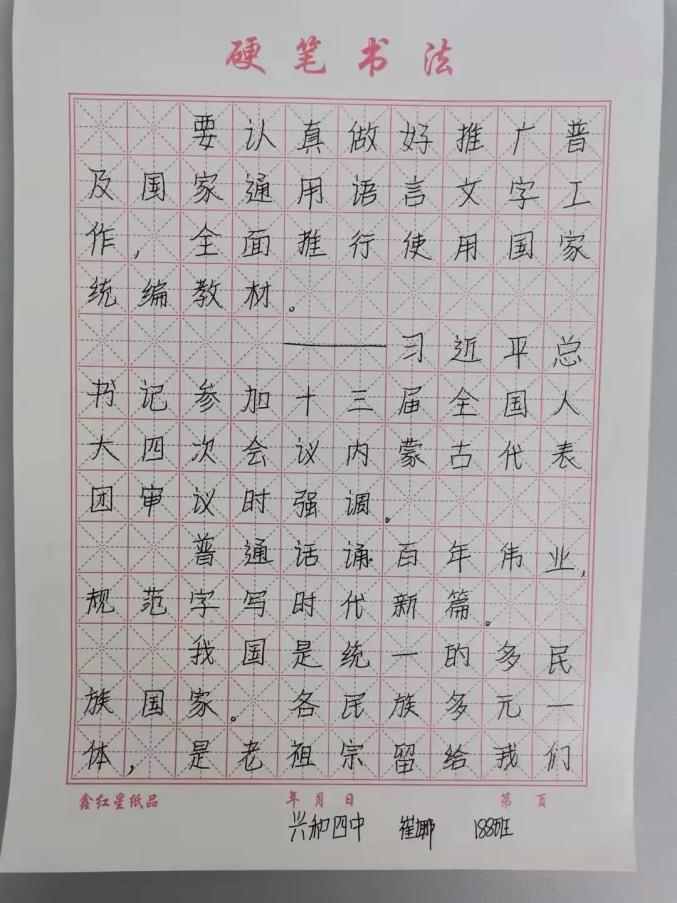 硬笔书法
要认真做好推广普
及国家通用语言文字工
作，全面推行使用国家
统编教材。
——习近平总
书记参加十三届全国人
大四次会议内蒙古代表
团审议时强调。
普通话诵百年伟业，
规范字写时代新篇。
我国是统一的多民
族国家。各民族多元一
体，是老祖宗留给我们
鑫红星纸品 年 月 日 第 页
兴和四中 崔 188班